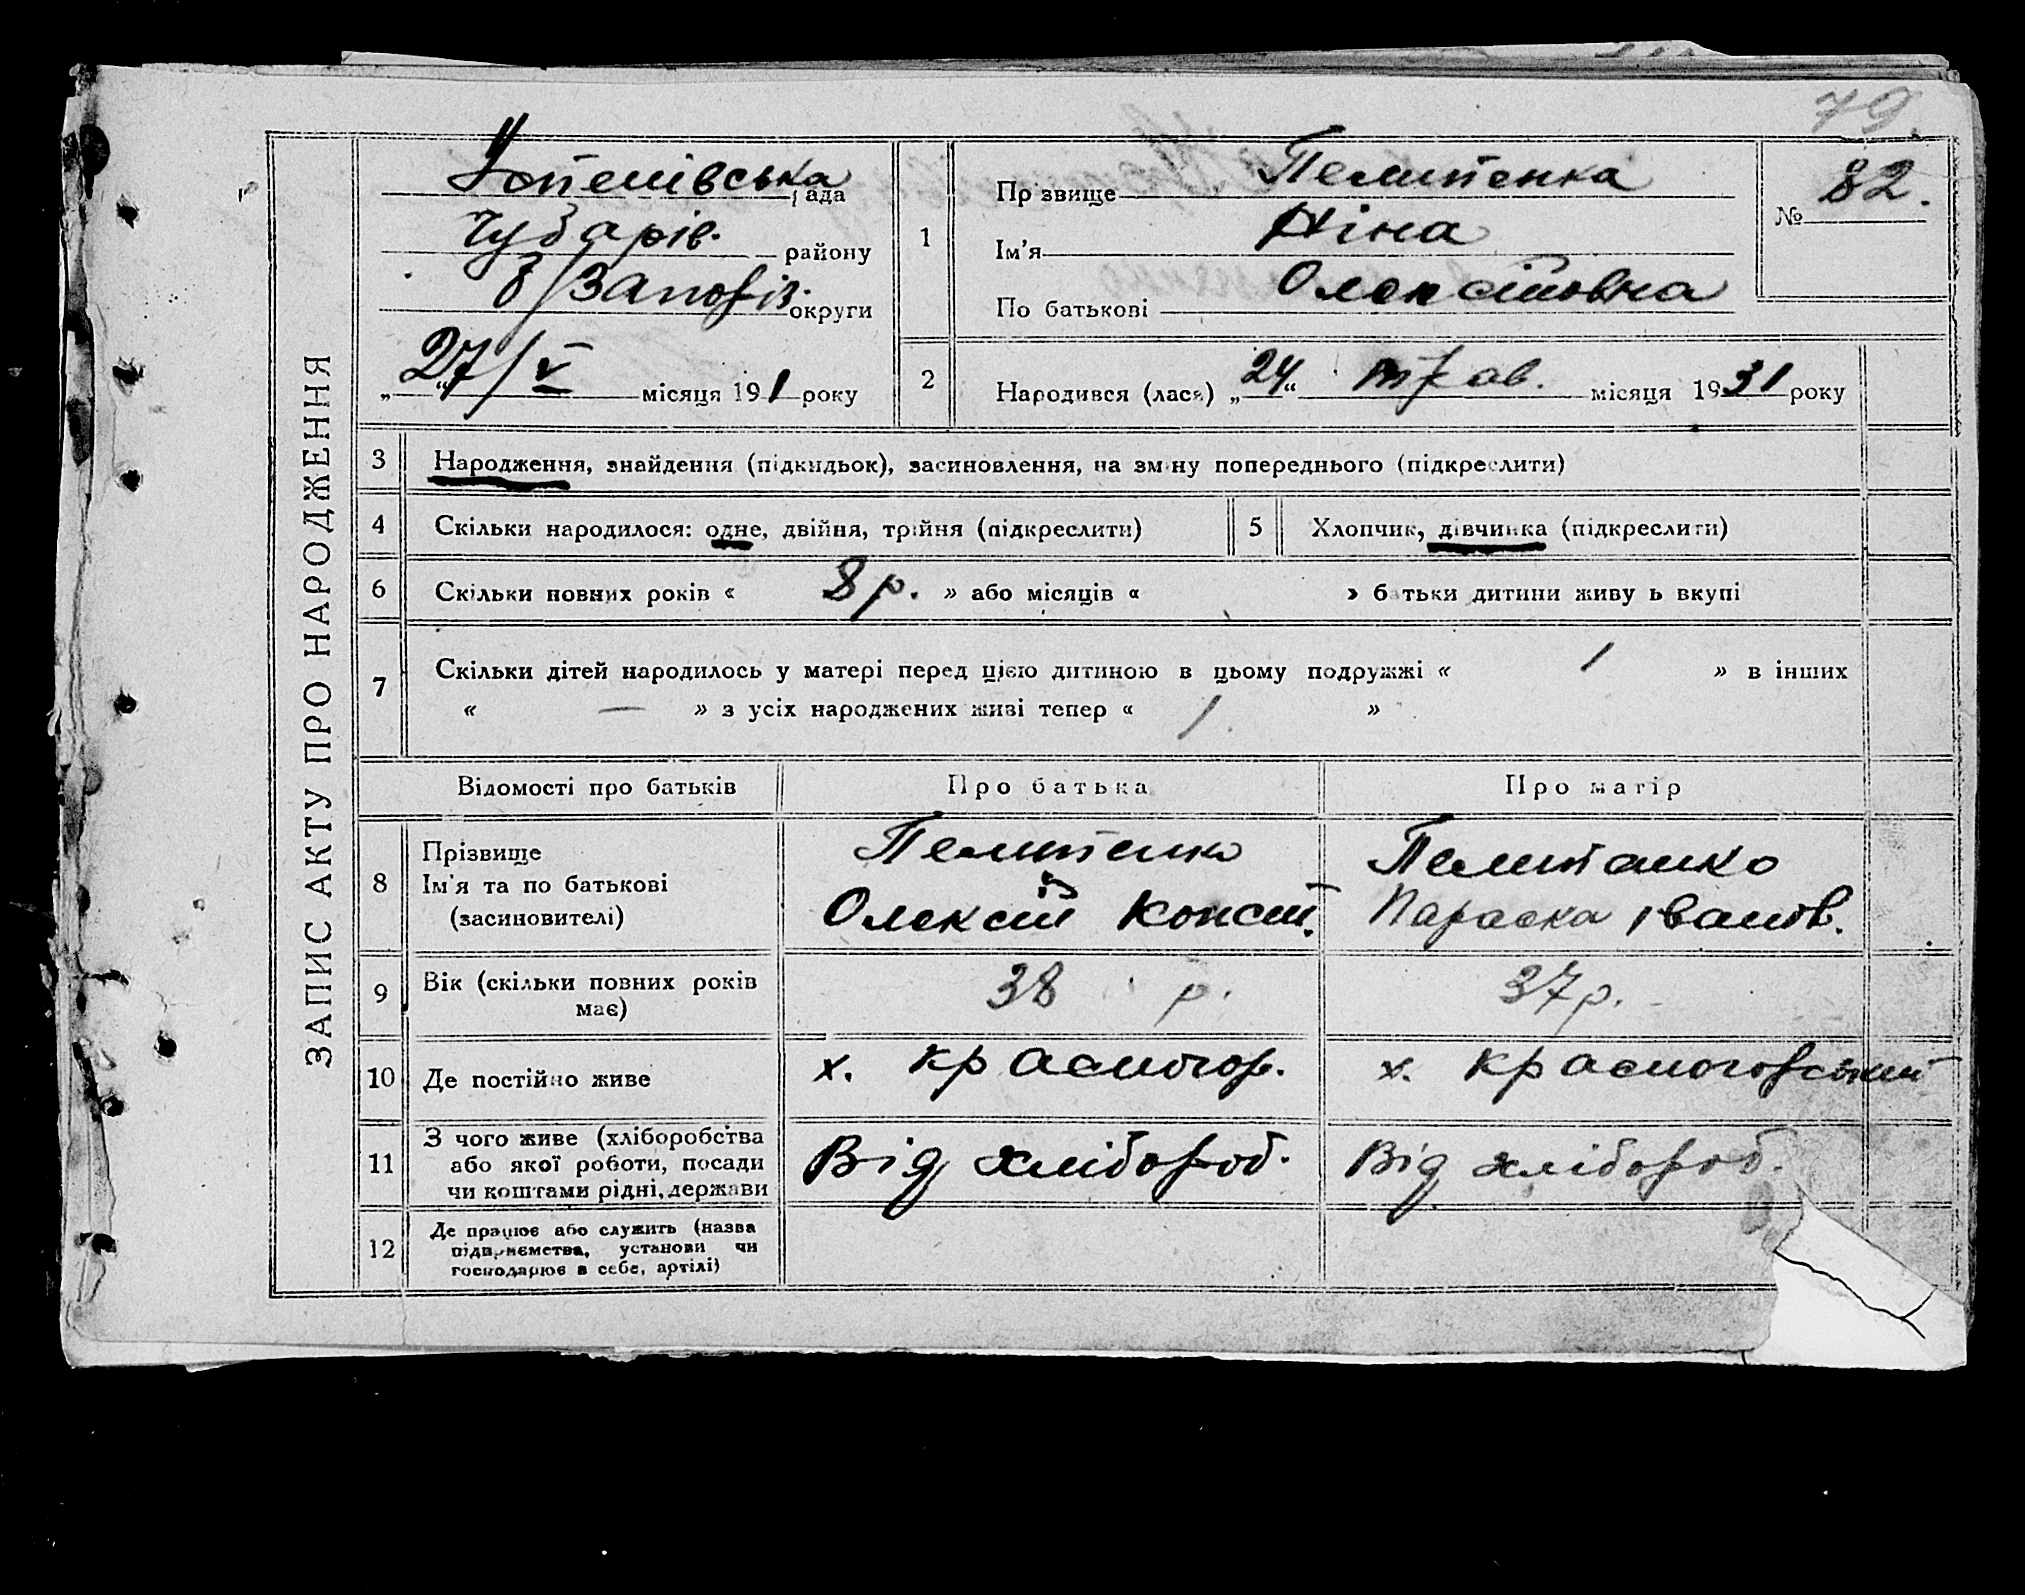 79.
ЗАПИС АКТУ ПРО НАРОДЖЕННЯ
рада
Чубарів. району
б/Запоріз. округи
„27/V“ місяця 191 року
1
Прізвище Пелипенка
Ім'я Ніна
По батькові Олексіївна
№ 82.
2 Народився (лася) „24“ трав. місяця 1931 року
3 Народження, знайдення (підкидьок), засиновлення, на зміну попереднього (підкреслити)
4 Скільки народилося: одне, двійня, трійня (підкреслити) 5 Хлопчик, дівчинка (підкреслити)
6 Скільки повних років « 8 р. » або місяців « » батьки дитини живуть вкупі
7 Скільки дітей народилось у матері перед цією дитиною в цьому подружжі « 1 » в інших
« — » з усіх народжених живі тепер « 1. »
Відомості про батьків Про батька Про матір
8 Прізвище
Ім'я та по батькові
(засиновителі)
Пелипенко
Олексій Конст.
Пелипенко
Параска Іванів.
9 Вік (скільки повних років має) 38 р. 37 р.
10 Де постійно живе х. Красногор. х. Красногорський
11 З чого живе (хліборобства
або якої роботи, посади
чи коштами рідні, держави
Від хлібороб. Від хлібороб.
12 Де працює або служить (назва
підприємства, установи чи
господарює в себе, артілі)